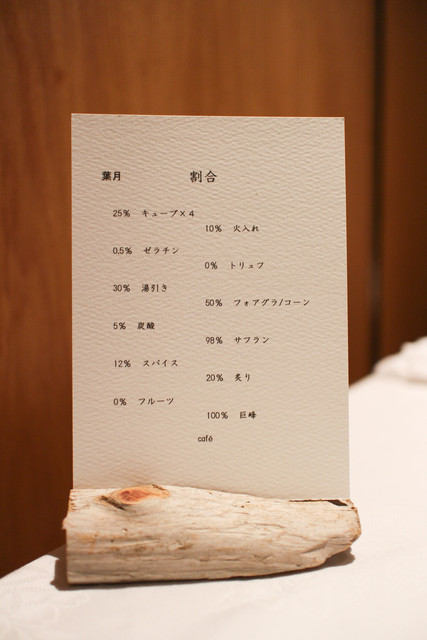 葉月 割合
25% キューブ×4
10% 火入れ
0.5% ゼラチン
0% トリュフ
30% 湯引き
50% フォアグラ/コーン
5% 炭酸
98% サフラン
12% スパイス
20% 炙り
0% フルーツ
100% 巨峰
café